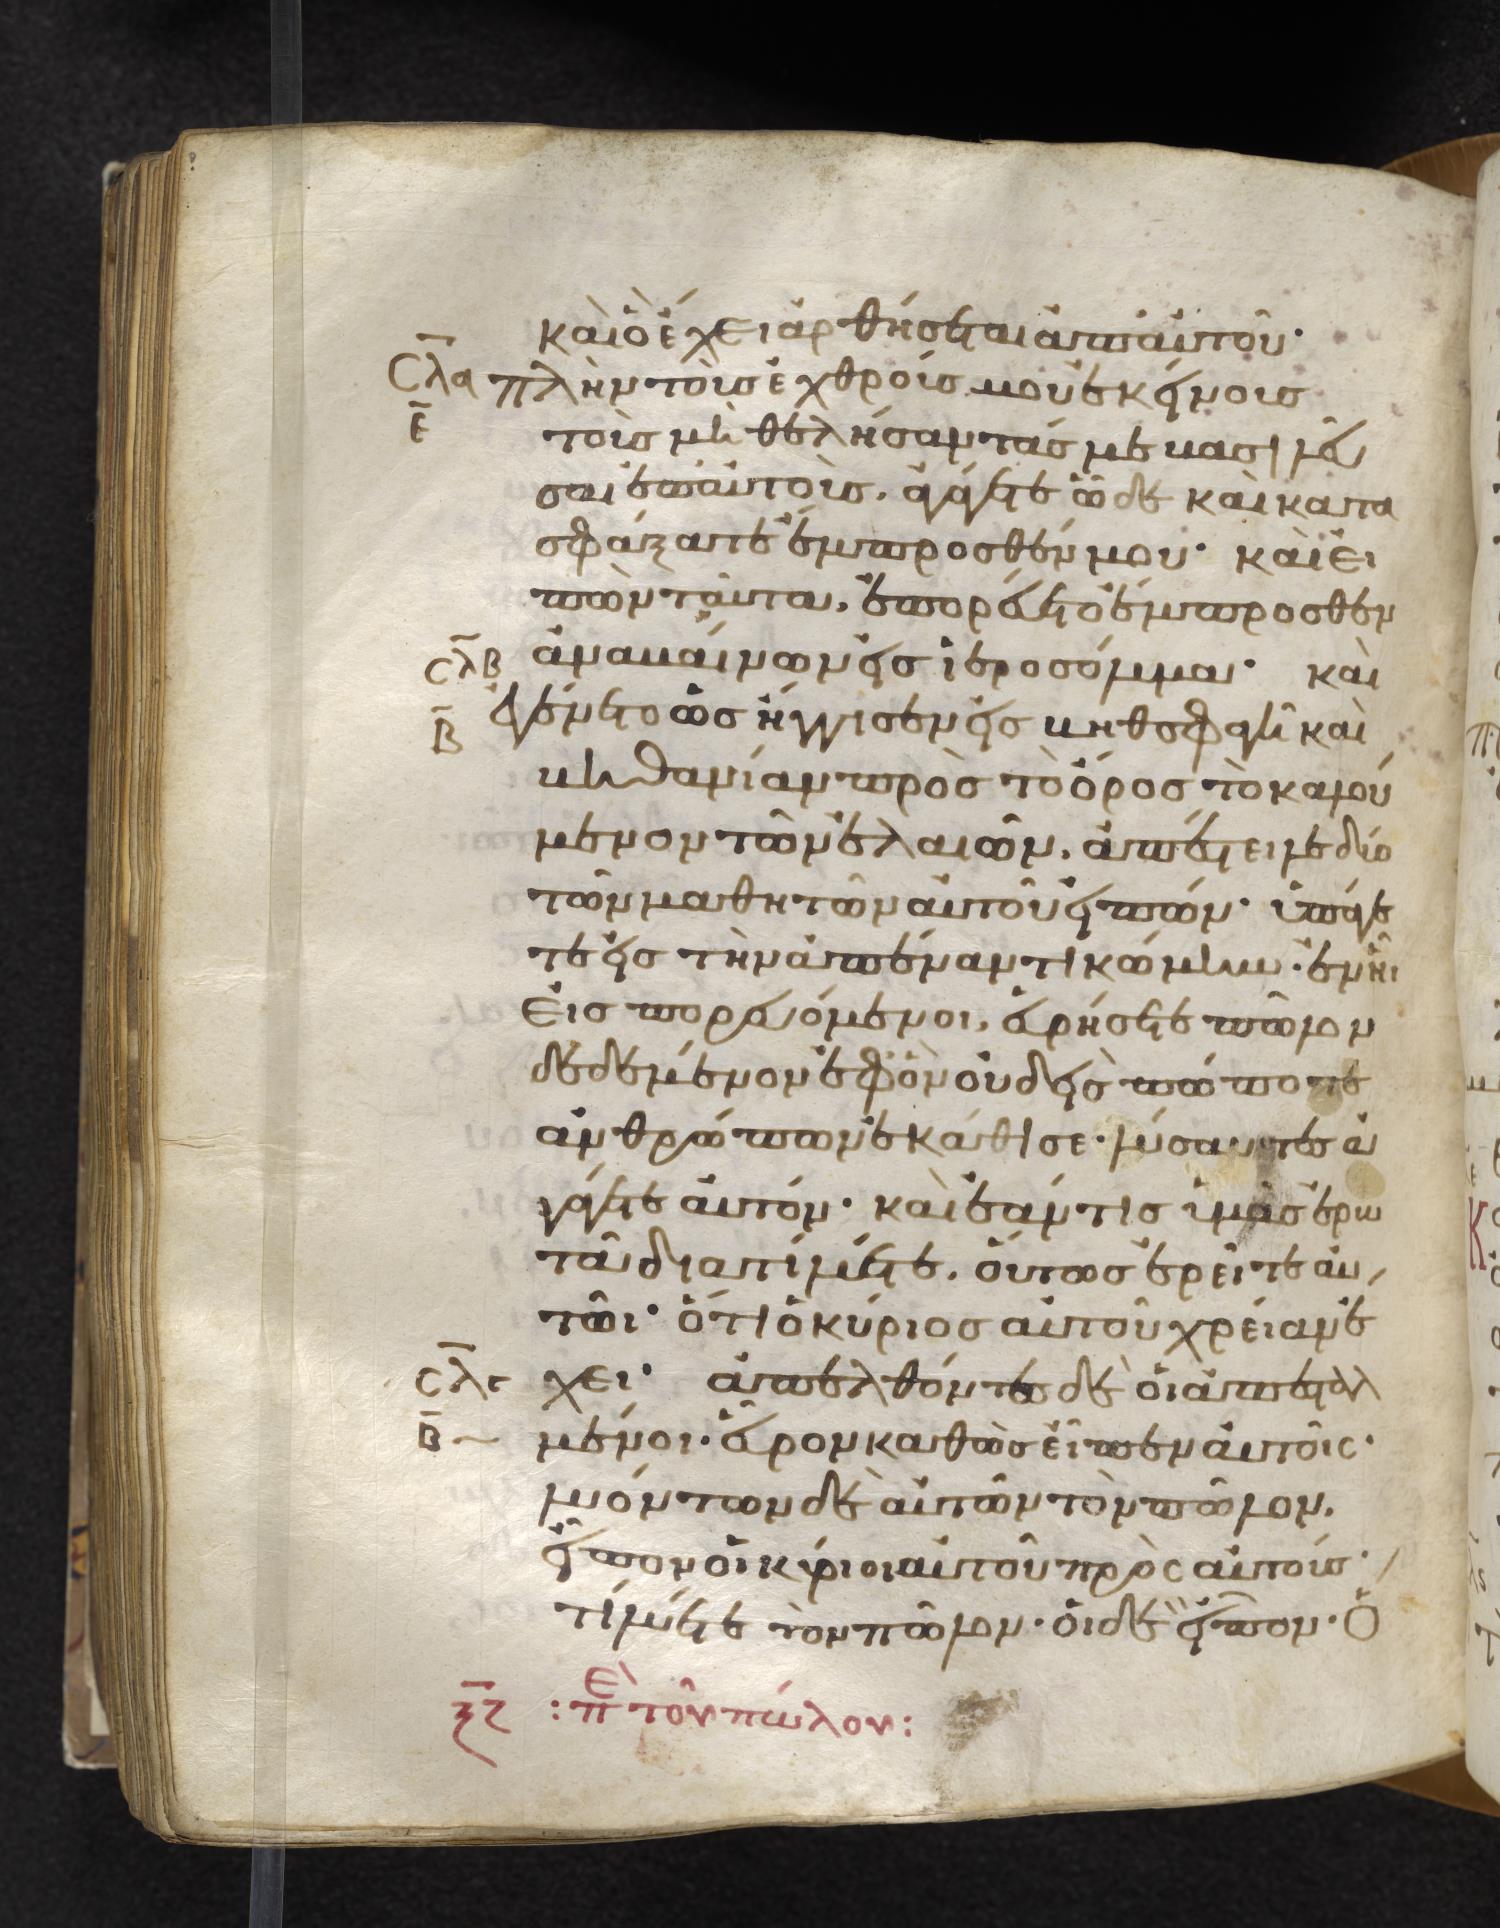 καὶ ὃ ἔχει ἀρθήσεται ἀπ' αὐτοῦ·
σλα πλὴν τοὺς ἐχθρούς μου ἐκείνους
ε τοὺς μὴ θελήσαντάς με βασιλεῦ
σαι ἐπ' αὐτοὺς, ἀγάγετε ὧδε καὶ κατα
σφάξατε ἔμπροσθέν μου· καὶ εἰ
πὼν ταῦτα, ἐπορεύετο ἔμπροσθεν
σλβ ἀναβαίνων εἰς ἱεροσόλυμα· καὶ
β ἐγένετο ὡς ἤγγισεν εἰς βηθσφαγῆ καὶ
βηθανίαν πρὸς τὸ ὄρος τὸ καλού
μενον τῶν ἐλαιῶν, ἀπέστειλε δύο
τῶν μαθητῶν αὐτοῦ εἰπών· ὑπάγε
τε εἰς τὴν ἀπέναντι κώμην· ἐν ἧι
εἰσπορευόμενοι, εὑρήσετε πῶλον
δεδεμένον ἐφ' ὃν οὐδεὶς πώποτε
ἀνθρώπων ἐκάθισε· λύσαντες ἀ
γάγετε αὐτόν· καὶ ἐάν τις ὑμᾶς ἐρω
τᾶ διατί λύετε, οὕτως ἐρεῖτε αὐ
τῶι· ὅτι ὁ κύριος αὐτοῦ χρείαν ἔ
σλγ χει· ἀπελθόντες δὲ οἱ ἀπεσταλ
β μένοι· εὗρον καθὼς εἶπεν αὐτοῖς·
λυόντων δὲ αὐτῶν τὸν πῶλον,
εἶπον οἱ κύριοι αὐτοῦ πρὸς αὐτούς·
τί λύετε τὸν πῶλον· οἱ δὲ εἶπον· ὁ
ξζ :πε τὸν πώλον: